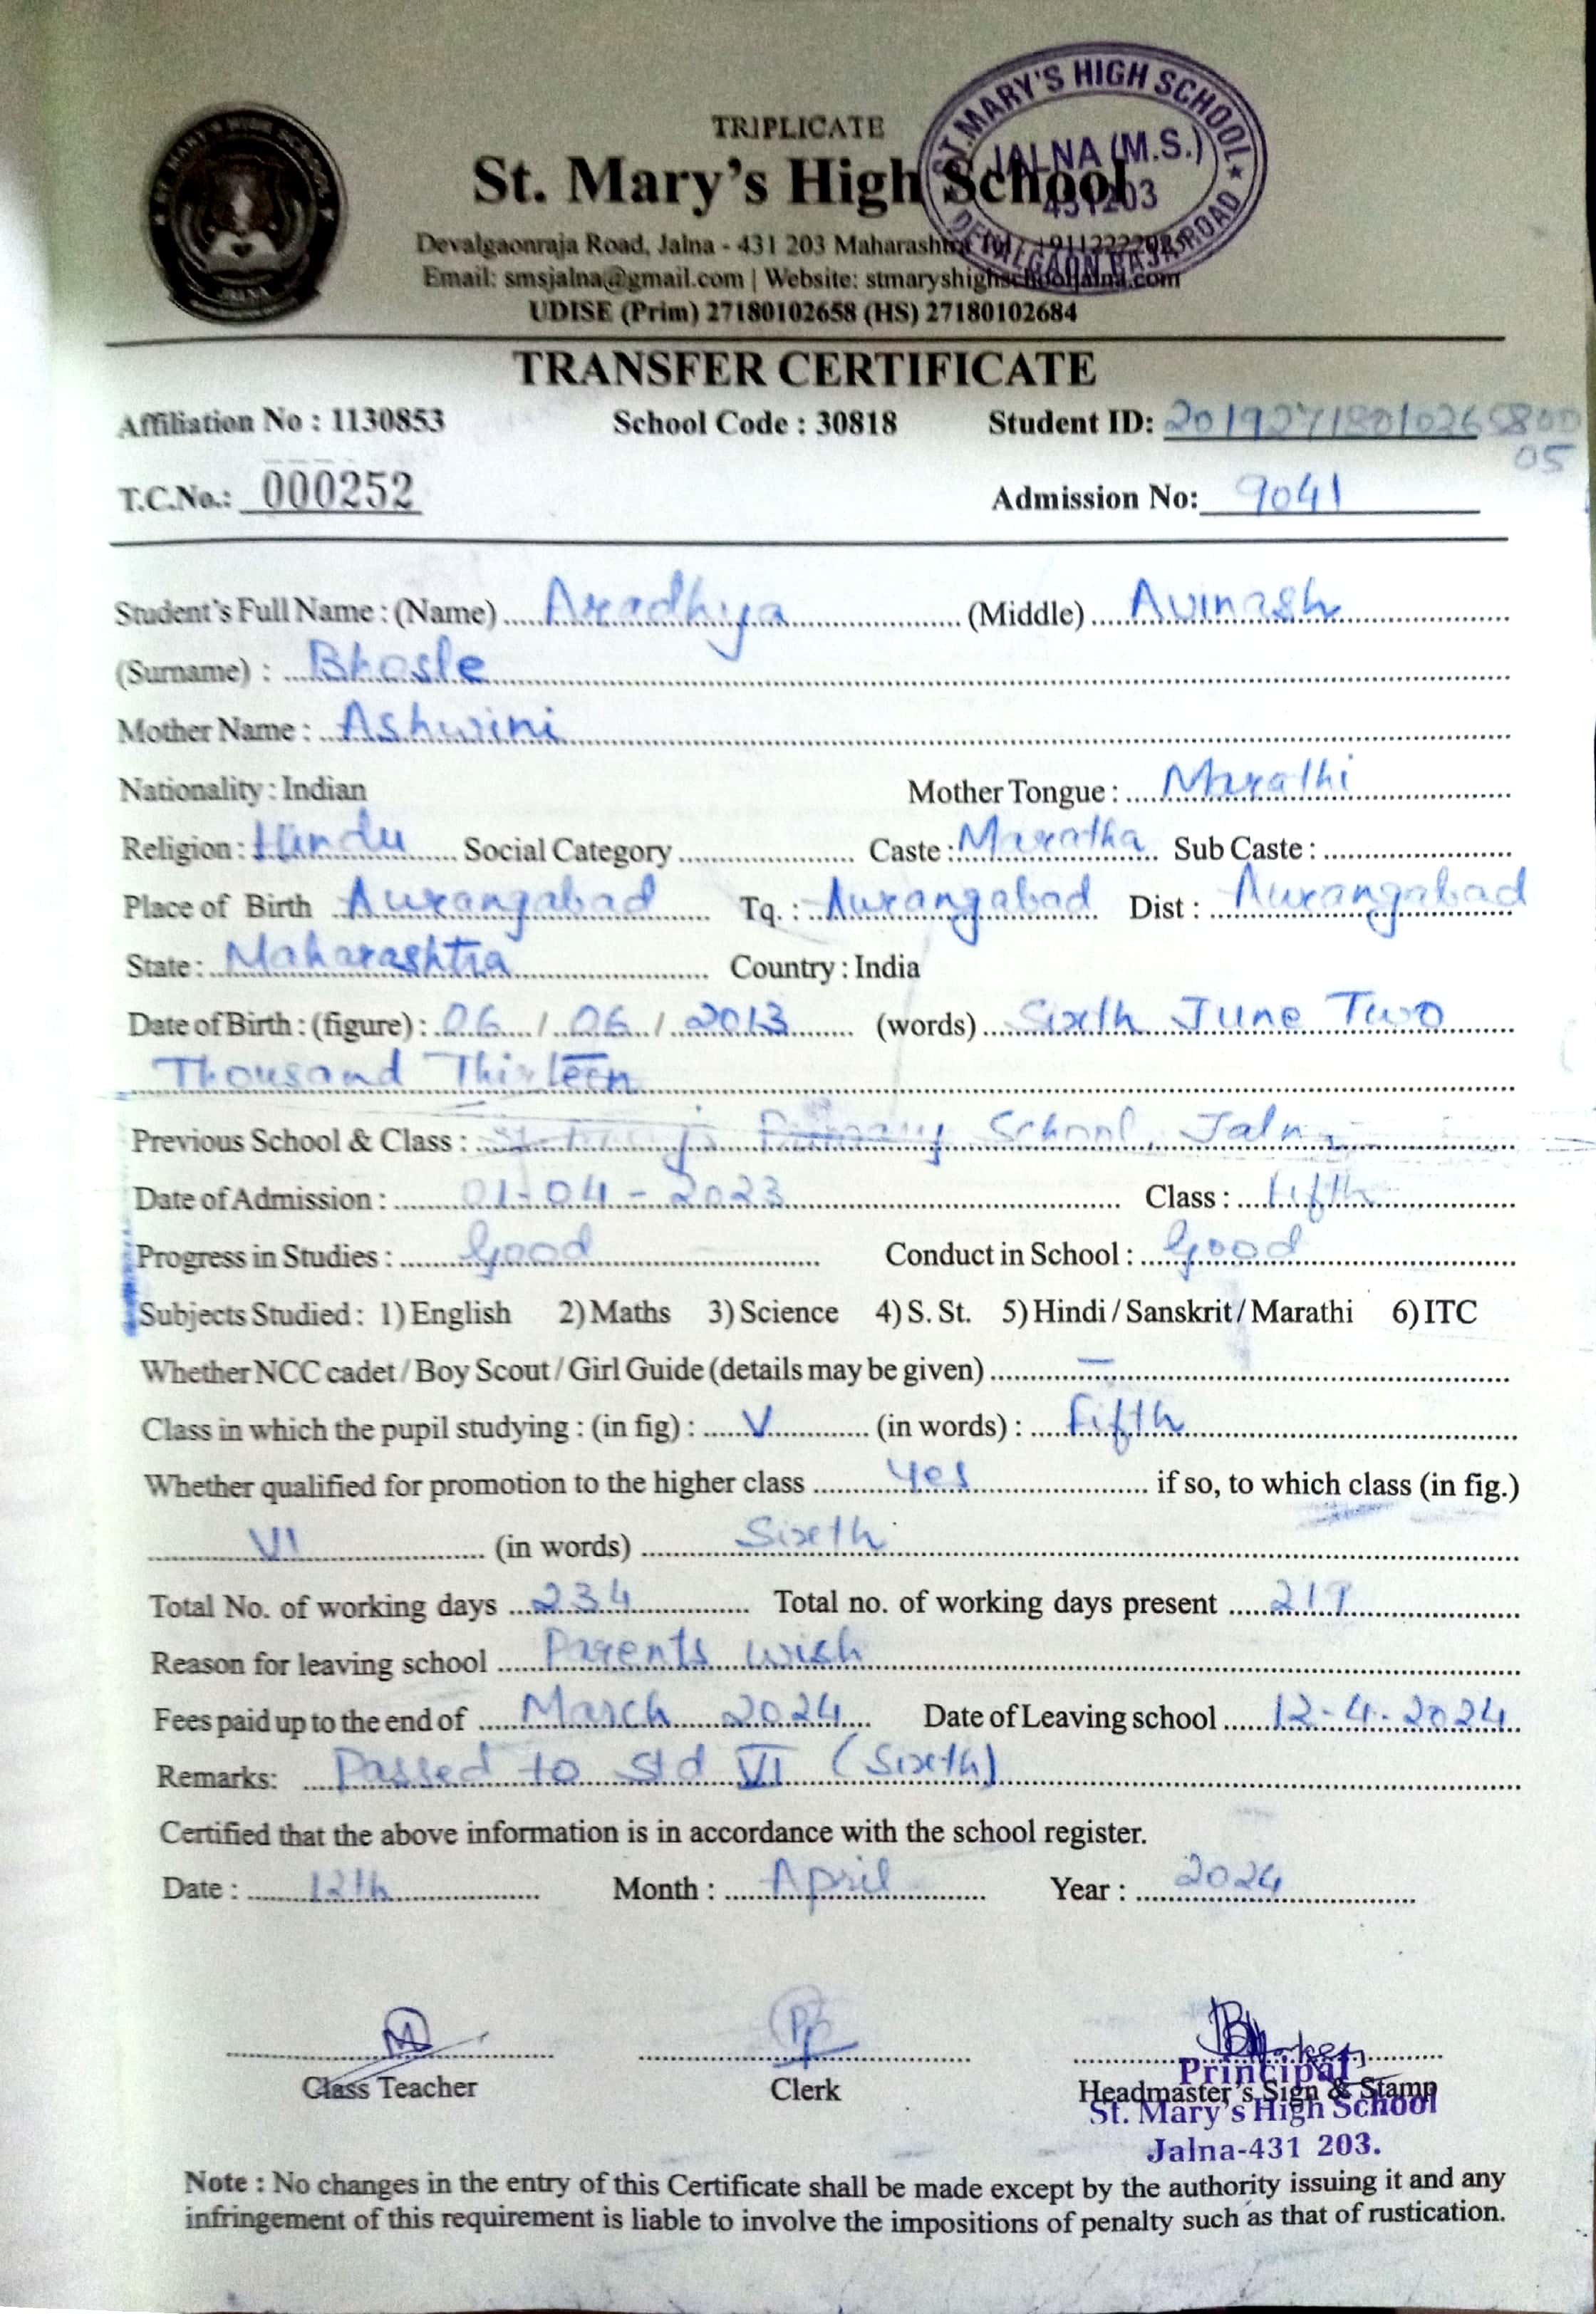 TRIPLICATE
St. Mary's High School
ST. MARY'S HIGH SCHOOL
JALNA (M.S.)
431203
DEVALGAON RAJA ROAD
Devalgaonraja Road, Jalna - 431 203 Maharashtra Tel
Email: smsjalna@gmail.com | Website: stmaryshighschooljalna.com
UDISE (Prim) 27180102658 (HS) 27180102684
ST. MARY'S HIGH SCHOOL
JALNA
TRANSFER CERTIFICATE
Affiliation No : 1130853 School Code : 30818 Student ID: 20192718010265800
05
T.C.No.: 000252 Admission No: 9041
Student's Full Name : (Name) Aradhya (Middle) Avinash
(Surname) : Bhosle
Mother Name : Ashwini
Nationality : Indian Mother Tongue : Marathi
Religion : Hindu Social Category Caste : Maratha Sub Caste :
Place of Birth Aurangabad Tq. : Aurangabad Dist : Aurangabad
State : Maharashtra Country : India
Date of Birth : (figure) : 06 / 06 / 2013 (words) Sixth June Two
Thousand Thirteen
Previous School & Class : Primary School, Jalna
Date of Admission : 01-04-2023 Class : fifth
Progress in Studies : Good Conduct in School : Good
Subjects Studied : 1) English 2) Maths 3) Science 4) S. St. 5) Hindi / Sanskrit / Marathi 6) ITC
Whether NCC cadet / Boy Scout / Girl Guide (details may be given) —
Class in which the pupil studying : (in fig) : V (in words) : fifth
Whether qualified for promotion to the higher class yes if so, to which class (in fig.)
VI (in words) Sixth
Total No. of working days 234 Total no. of working days present
Reason for leaving school Parents wish
Fees paid up to the end of March 2024 Date of Leaving school 12-4-2024
Remarks: Passed to std VI (Sixth)
Certified that the above information is in accordance with the school register.
Date : 12th Month : April Year : 2024
Class Teacher Clerk Headmaster's Sign & Stamp
Principal
St. Mary's High School
Jalna-431 203.
Note : No changes in the entry of this Certificate shall be made except by the authority issuing it and any
infringement of this requirement is liable to involve the impositions of penalty such as that of rustication.